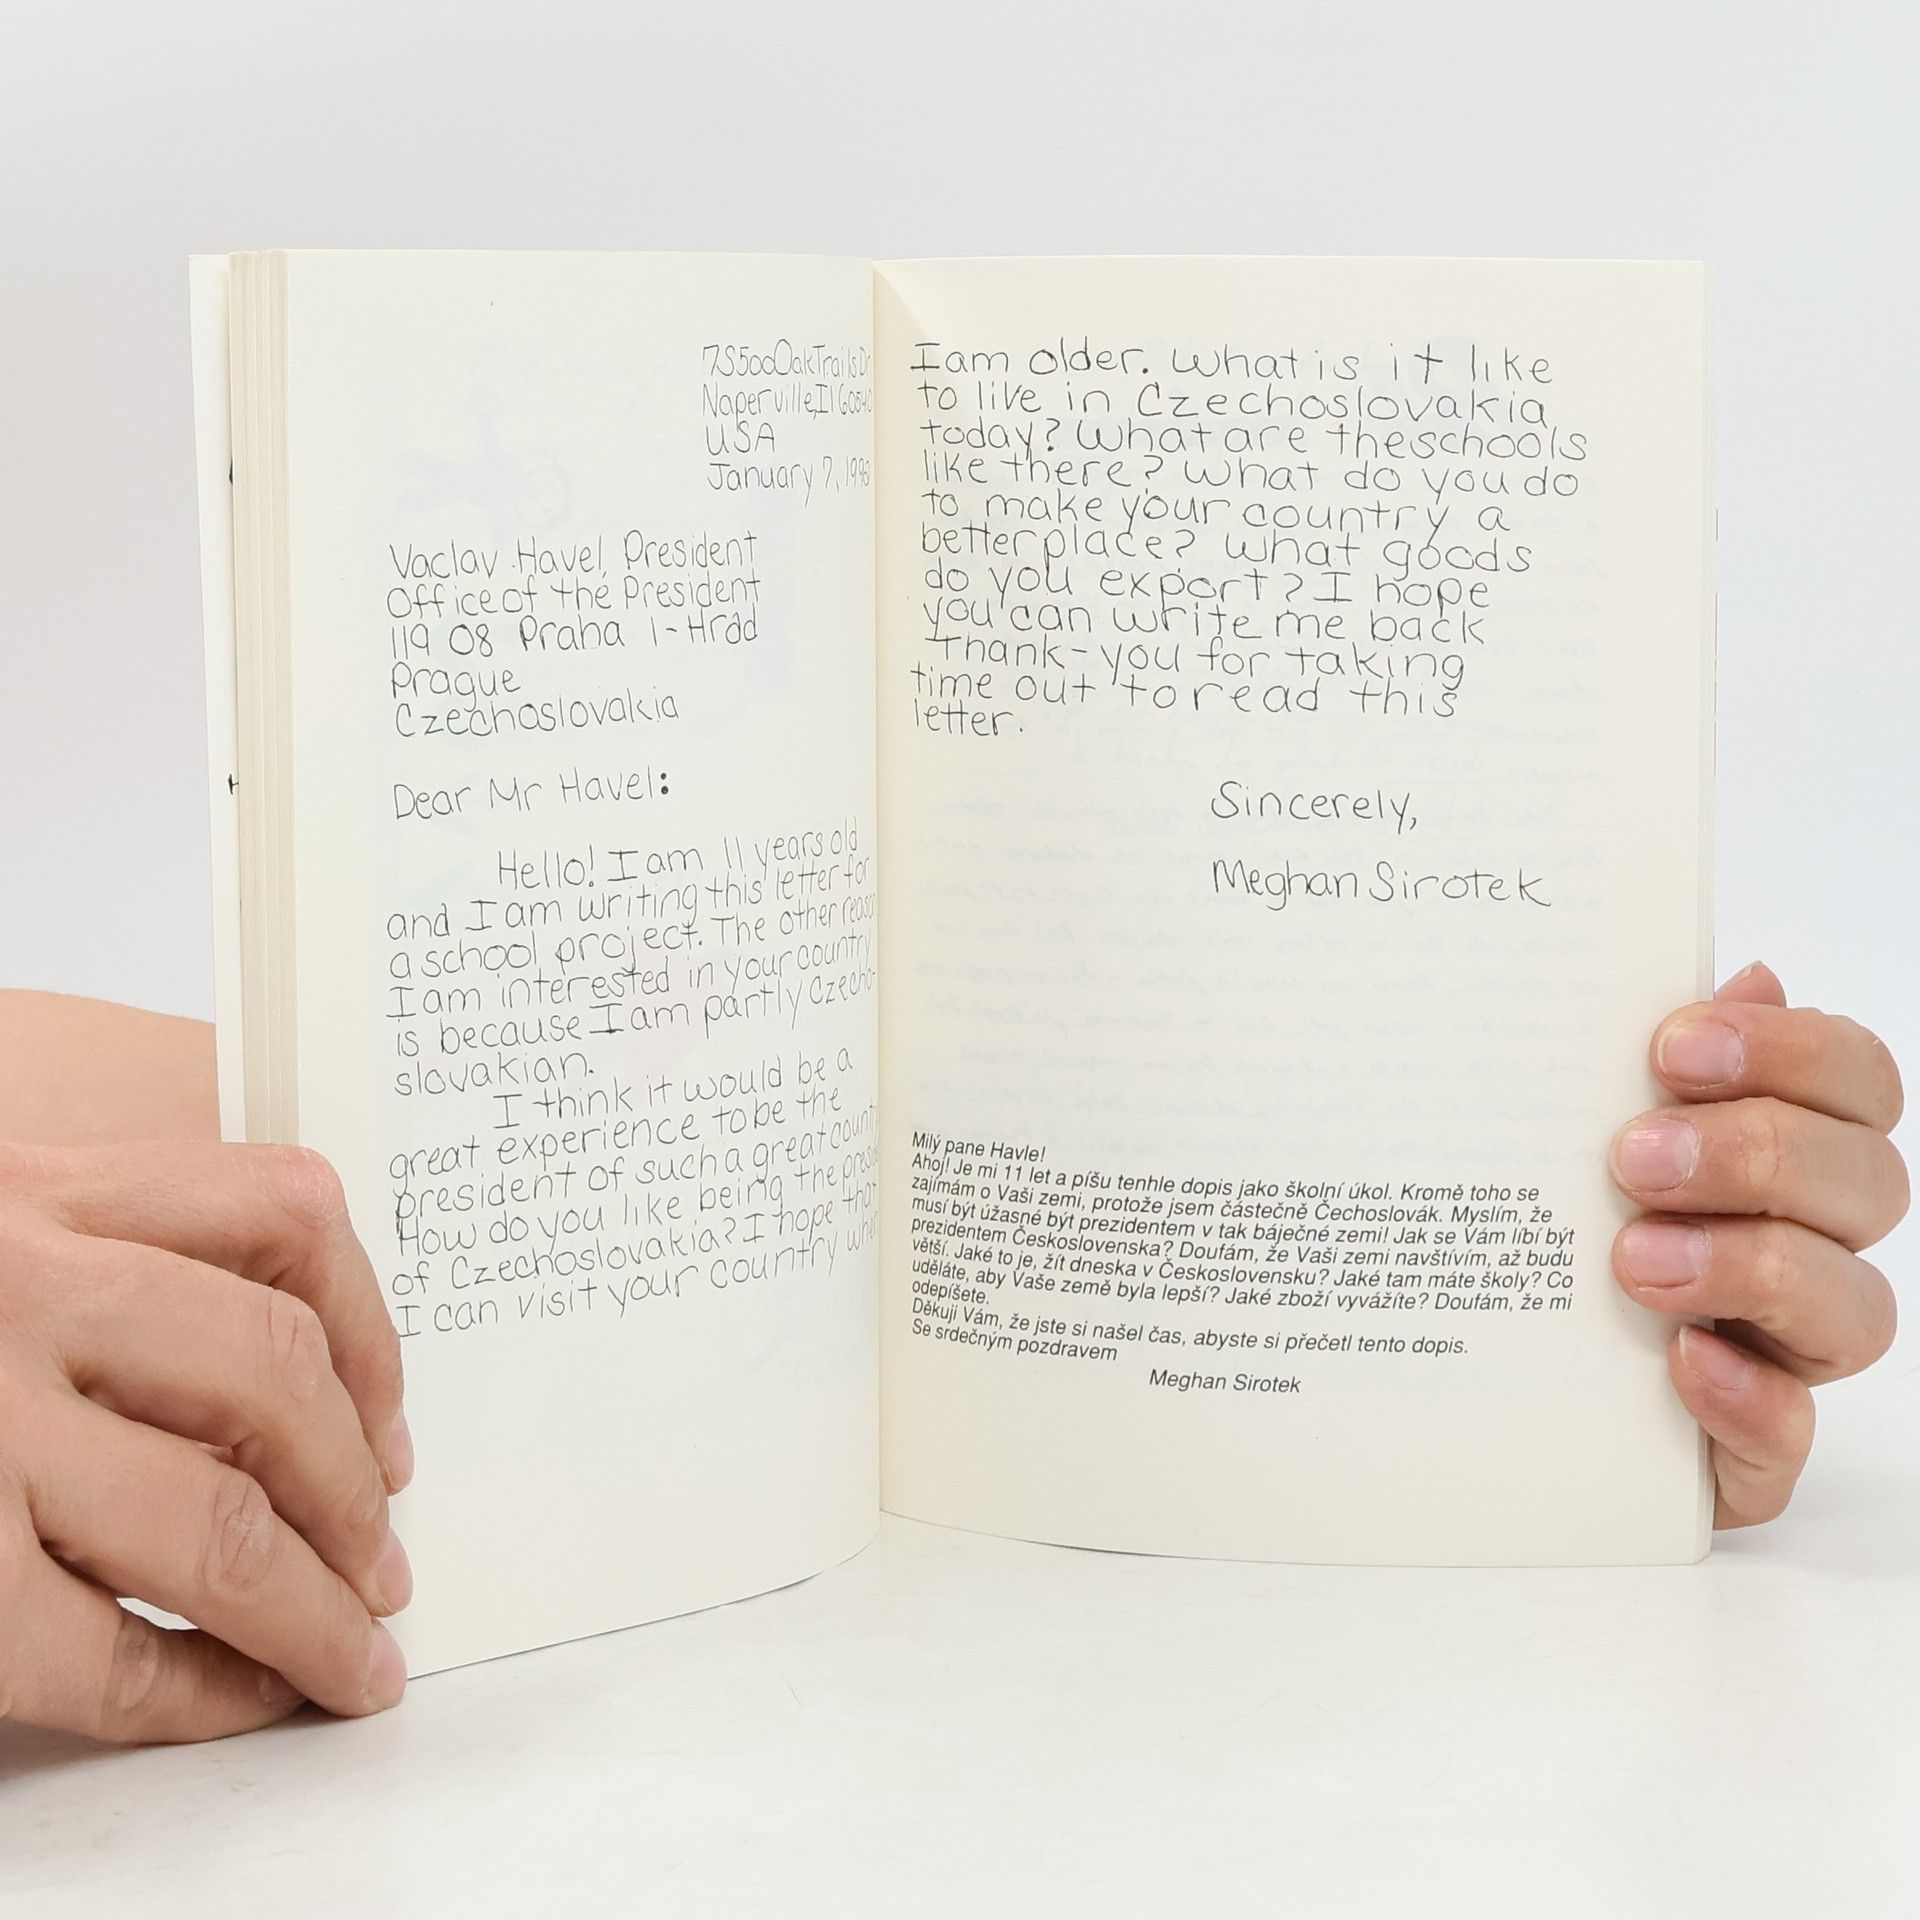 7S500 Oak Trails Dr
Naperville, Il 60540
USA
January 7,
Vaclav Havel, President
Office of the President
119 08 Praha 1-Hrad
Prague
Czechoslovakia
Dear Mr Havel:
Hello! I am 11 years old
and I am writing this letter for
a school project. The other reason
I am interested in your country
is because I am partly Czecho-
slovakian.
I think it would be a
great experience to be the
president of such a great
How do you like being the
of Czechoslovakia? I hope that
I can visit your country when
I am older. What is it like
to live in Czechoslovakia
today? What are the schools
like there? What do you do
to make your country a
better place? What goods
do you export? I hope
you can write me back
Thank-you for taking
time out to read this
letter.
Sincerely,
Meghan Sirotek
Milý pane Havle!
Ahoj! Je mi 11 let a píšu tenhle dopis jako školní úkol. Kromě toho se
zajímám o Vaši zemi, protože jsem částečně Čechoslovák. Myslím, že
musí být úžasné být prezidentem v tak báječné zemi! Jak se Vám líbí být
prezidentem Československa? Doufám, že Vaši zemi navštívím, až budu
větší. Jaké to je, žít dneska v Československu? Jaké tam máte školy? Co
uděláte, aby Vaše země byla lepší? Jaké zboží vyvážíte? Doufám, že mi
odepíšete.
Děkuji Vám, že jste si našel čas, abyste si přečetl tento dopis.
Se srdečným pozdravem
Meghan Sirotek